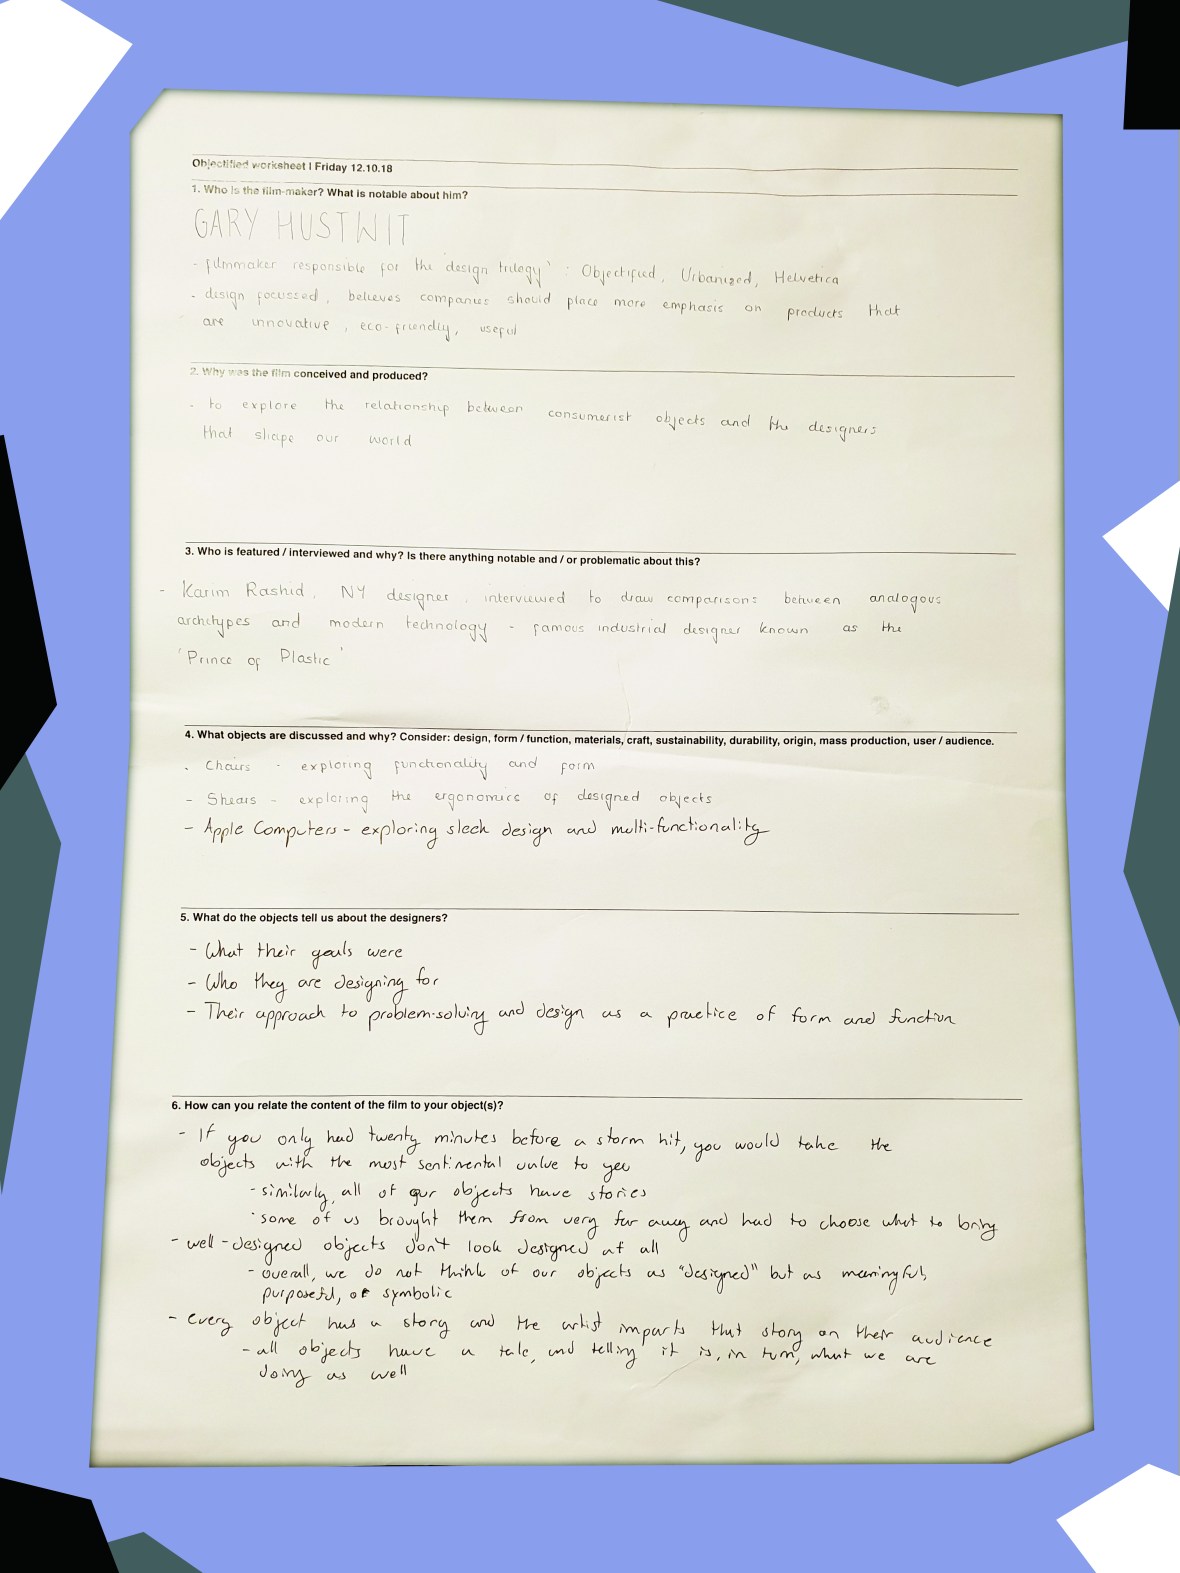 Objectified worksheet | Friday 12.10.18
1. Who is the film-maker? What is notable about him?
GARY HUSTWIT
- filmmaker responsible for the design trilogy' : Objectified, Urbanized, Helvetica
- design focussed, believes companies should place more emphasis on products that
are innovative, eco-friendly, useful
2. Why was the film conceived and produced?
- to explore the relationship between consumerist objects and the designers
that shape our world
3. Who is featured / interviewed and why? Is there anything notable and / or problematic about this?
- Karim Rashid, NY designer, interviewed to draw comparisons between analogous
archetypes and modern technology - famous industrial designer known as the
'Prince of Plastic'
4. What objects are discussed and why? Consider: design, form / function, materials, craft, sustainability, durability, origin, mass production, user / audience.
- Chairs - exploring functionality and form
- Shears - exploring the ergonomics of designed objects
- Apple Computers - exploring sleek design and multi-functionality
5. What do the objects tell us about the designers?
- What their goals were
- Who they are designing for
- Their approach to problem-solving and design as a practice of form and function
6. How can you relate the content of the film to your object(s)?
- If you only had twenty minutes before a storm hit, you would take the
objects with the most sentimental value to you
- similarly, all of our objects have stories
- some of us brought them from very far away and had to choose what to bring
- well-designed objects don't look designed at all
- overall, we do not think of our objects as "designed" but as meaningful,
purposeful, or symbolic
- every object has a story and the artist imparts that story on their audience
- all objects have a tale, and telling it is, in turn, what we are
doing as well